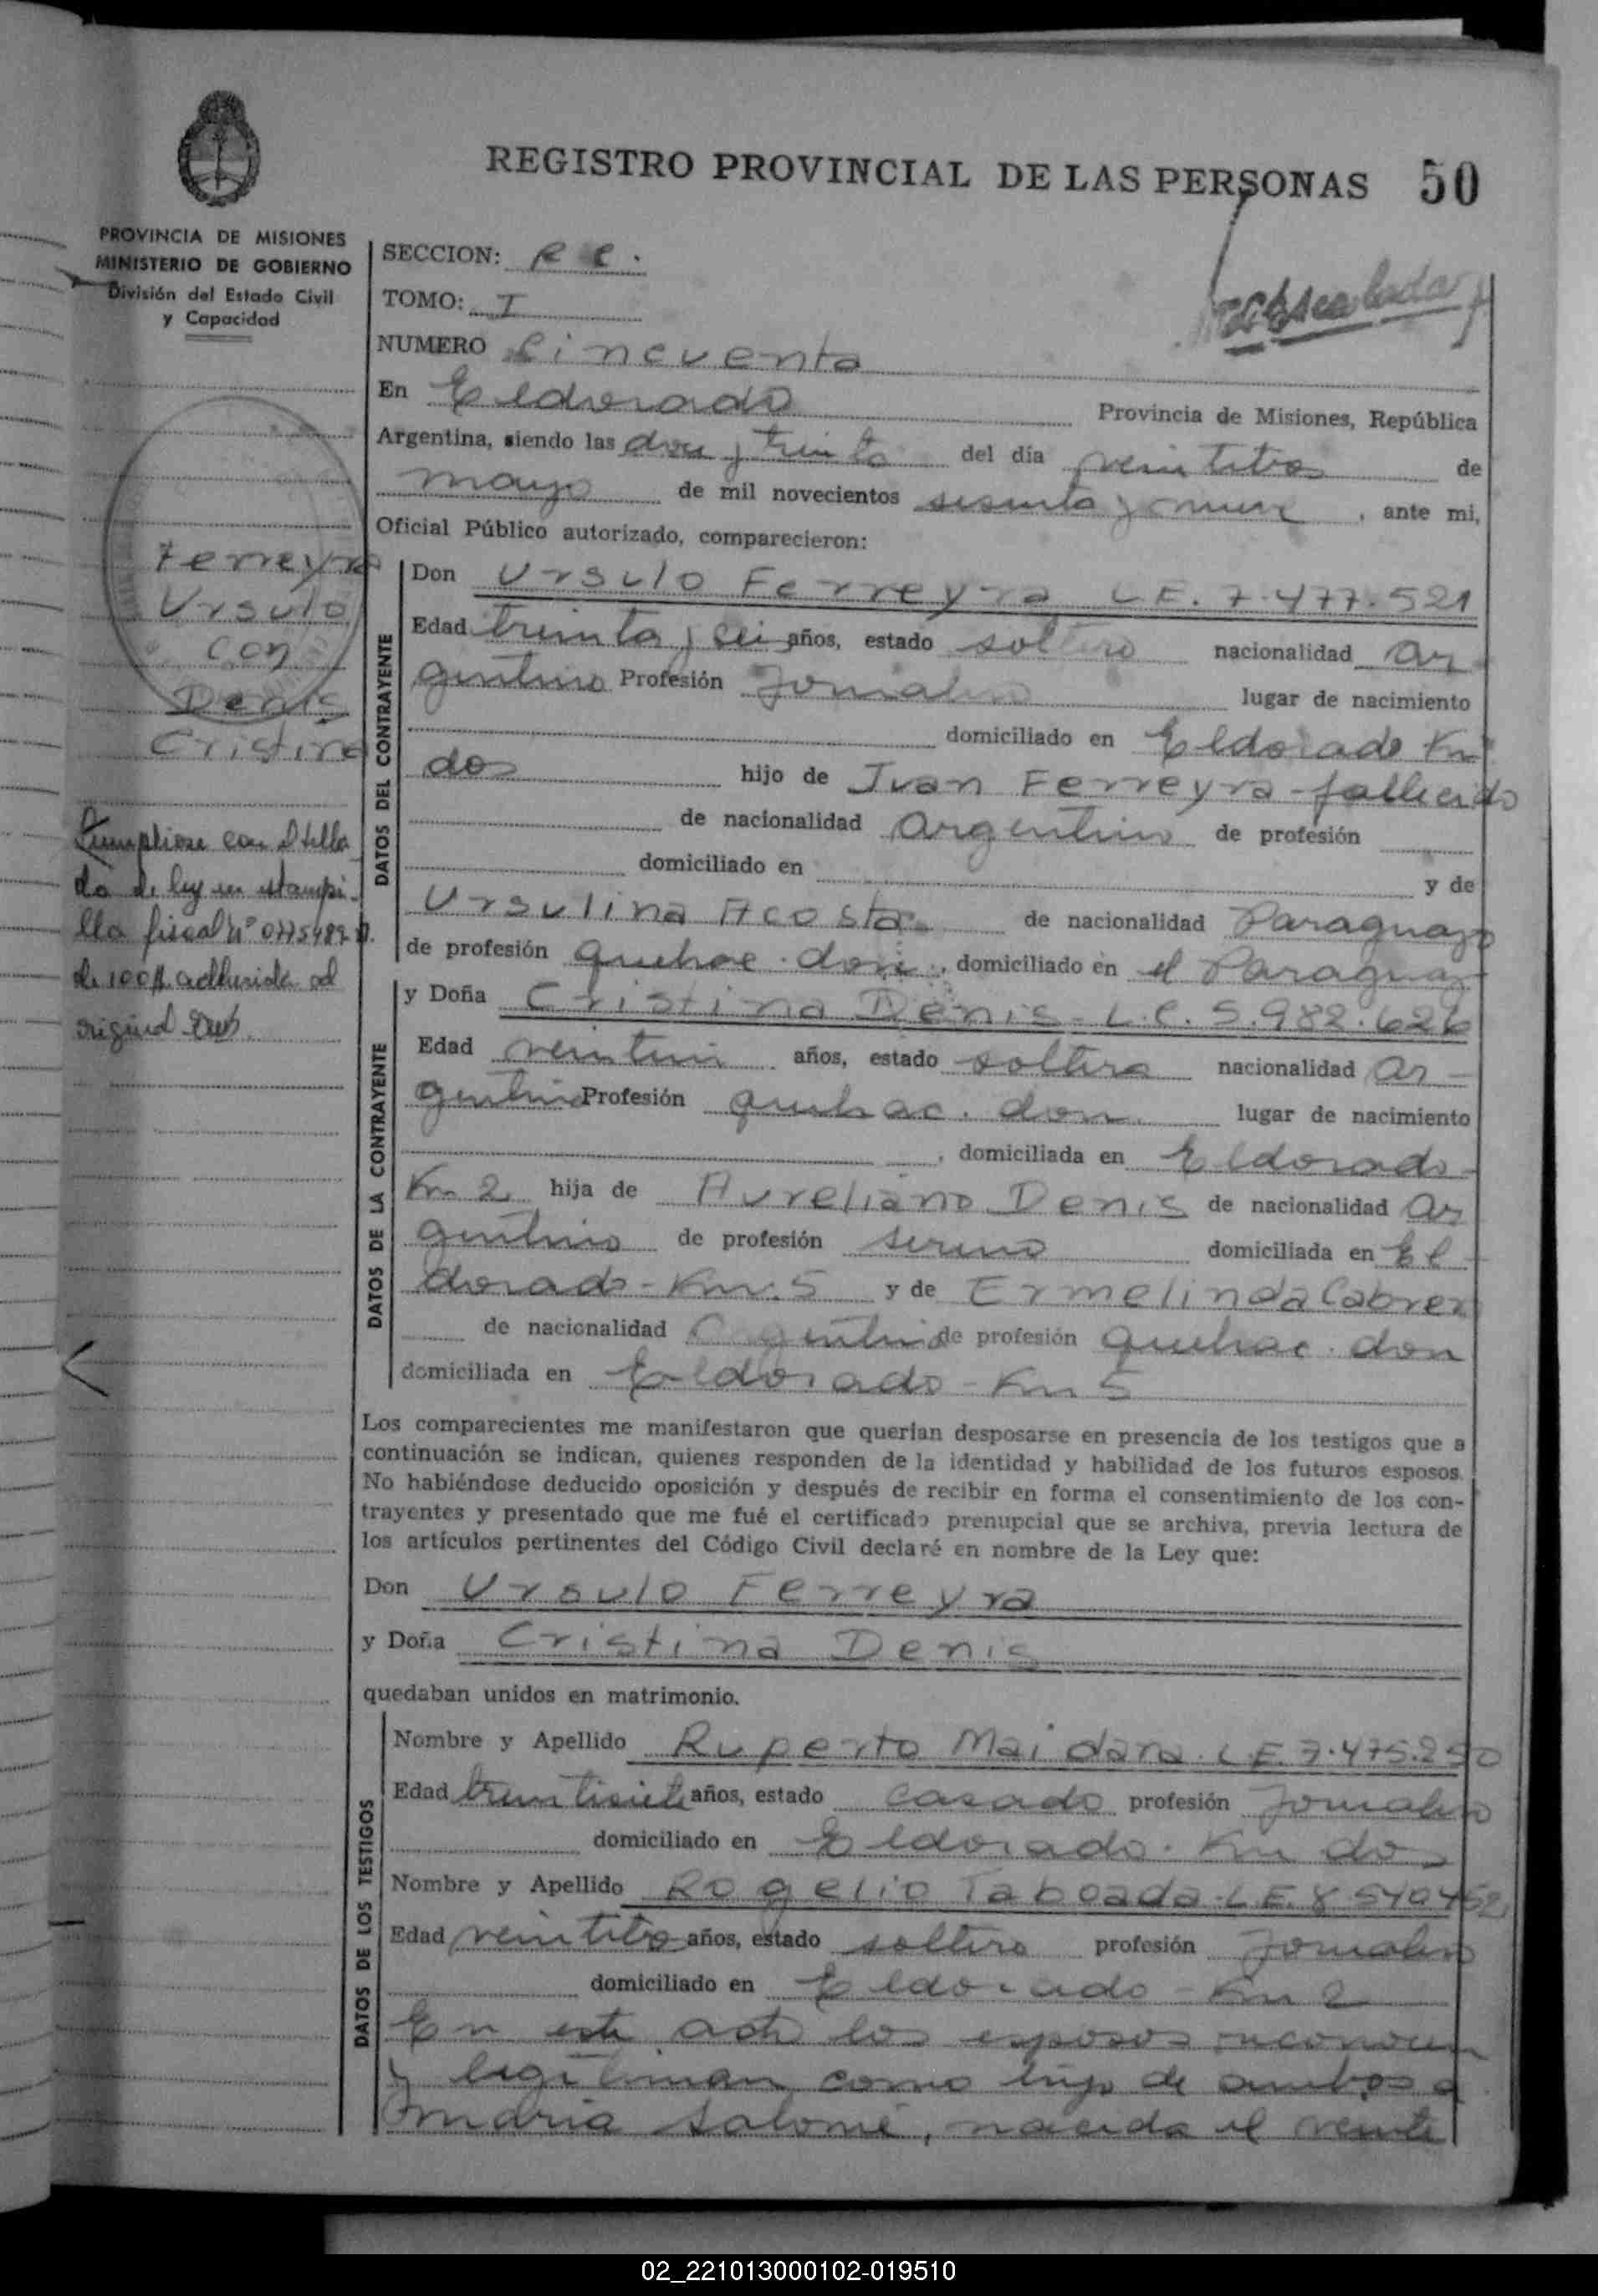 REGISTRO PROVINCIAL DE LAS PERSONAS 50
PROVINCIA DE MISIONES
MINISTERIO DE GOBIERNO
División del Estado Civil
y Capacidad
SECCION: R C.
TOMO: I
NUMERO Cincuenta
En Eldorado Provincia de Misiones, República
Argentina, siendo las doce y treinta del día veintitres de
mayo de mil novecientos sesenta y nueve, ante mi,
Oficial Público autorizado, comparecieron:
Ferreyra
Ursulo
con
Denis
Cristina
Cumpliose con el sella
do de ley en estampi-
lla fiscal Nº
de 100 $ adherida al
original
DATOS DEL CONTRAYENTE
Don Ursulo Ferreyra L.E. 7.477.521
Edad treinta y seis años, estado soltero nacionalidad ar
gentino Profesión Jornalero lugar de nacimiento
domiciliado en Eldorado Km
dos hijo de Juan Ferreyra - fallecido
de nacionalidad argentino de profesión
domiciliado en y de
Ursulina Acosta de nacionalidad Paraguayo
de profesión quehac. dom., domiciliado en el Paraguay
DATOS DE LA CONTRAYENTE
y Doña Cristina Denis - L.C. 5.982.626
Edad años, estado soltera nacionalidad ar-
gentina Profesión quehac. dom. lugar de nacimiento
, domiciliada en Eldorado-
Km 2 hija de Aureliano Denis de nacionalidad ar
gentino de profesión sereno domiciliada en El
dorado - Km. 5 y de Ermelinda Cabrera
de nacionalidad argentina de profesión quehac. dom
domiciliada en Eldorado - Km 5
Los comparecientes me manifestaron que querían desposarse en presencia de los testigos que a
continuación se indican, quienes responden de la identidad y habilidad de los futuros esposos.
No habiéndose deducido oposición y después de recibir en forma el consentimiento de los con-
trayentes y presentado que me fué el certificado prenupcial que se archiva, previa lectura de
los artículos pertinentes del Código Civil declaré en nombre de la Ley que:
Don Ursulo Ferreyra
y Doña Cristina Denis
quedaban unidos en matrimonio.
DATOS DE LOS TESTIGOS
Nombre y Apellido Ruperto Maidana. L.E. 7.475.250
Edad treintisiete años, estado casado profesión Jornalero
domiciliado en Eldorado. Km dos
Nombre y Apellido Rogelio Taboada - L.E. 8.540452
Edad veintitres años, estado soltero profesión Jornalero
domiciliado en Eldorado - Km 2
En este acto los esposos reconocen
y legitiman como hijo de ambos a
maria salomé, nacida el veinte
02_221013000102-019510